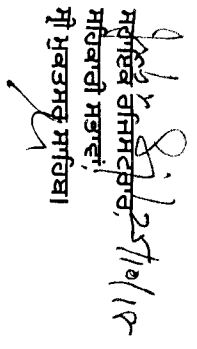 ਸਹਾਇਕ ਰਜਿਸਟਰਾਰ,
ਸਹਿਕਾਰੀ ਸਭਾਵਾਂ,
ਸ੍ਰੀ ਮੁਕਤਸਰ ਸਾਹਿਬ।